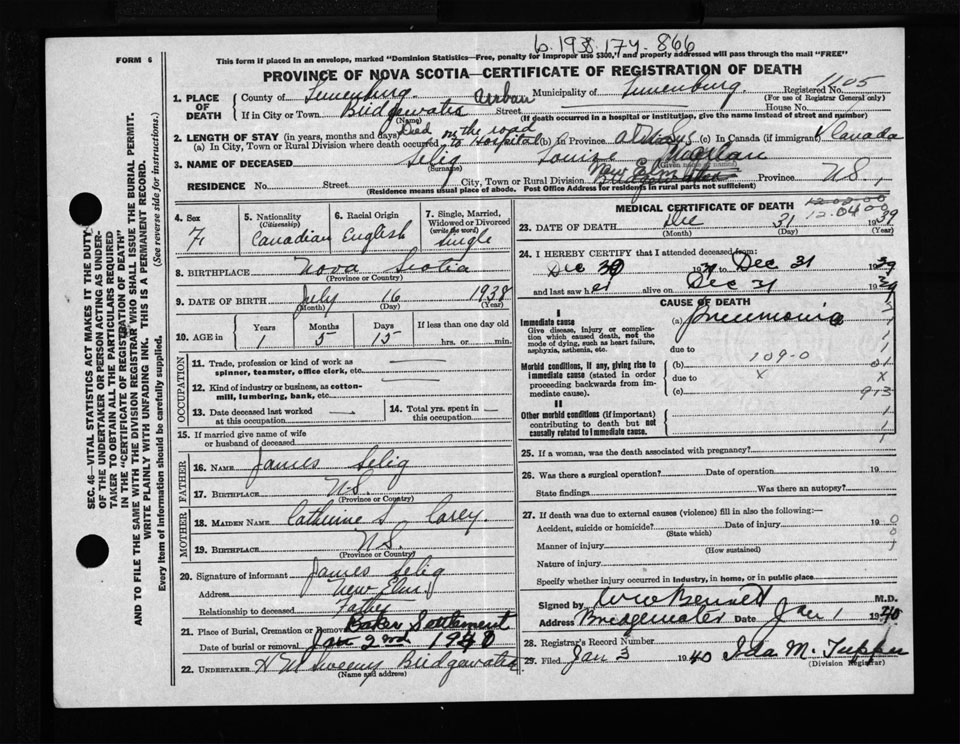 b. 1938. 174. 866
FORM 6
This form if placed in an envelope, marked "Dominion Statistics—Free, penalty for improper use $300," and properly addressed will pass through the mail "FREE"
PROVINCE OF NOVA SCOTIA—CERTIFICATE OF REGISTRATION OF DEATH
1. PLACE OF DEATH County of Lunenburg Urban Municipality of Lunenburg. Registered No. 1105
(For use of Registrar General only)
If in City or Town Bridgewater Street House No.
(Name) (If death occurred in a hospital or institution, give the name instead of street and number)
2. LENGTH OF STAY (in years, months and days)
(a) In City, Town or Rural Division where death occurred Died on the road to Hospital (b) In Province always (c) In Canada (if immigrant) Canada
3. NAME OF DECEASED Selig Louise
(Surname) (Given name or names)
RESIDENCE No. Street City, Town or Rural Division New Elm Bridgewater Province N.S.
(Residence means usual place of abode. Post Office Address for residents in rural parts not sufficient)
4. Sex F.
5. Nationality (Citizenship) Canadian
6. Racial Origin English
7. Single, Married, Widowed or Divorced (write the word) Single
8. BIRTHPLACE Nova Scotia
(Province or Country)
9. DATE OF BIRTH July 16 1938
(Month) (Day) (Year)
10. AGE in Years Months Days If less than one day old
1 5 15 hrs. or min.
OCCUPATION
11. Trade, profession or kind of work as spinner, teamster, office clerk, etc.
12. Kind of industry or business, as cotton-mill, lumbering, bank, etc.
13. Date deceased last worked at this occupation
14. Total yrs. spent in this occupation
15. If married give name of wife or husband of deceased
FATHER
16. NAME James Selig
17. BIRTHPLACE N.S.
(Province or Country)
MOTHER
18. MAIDEN NAME Catherine S. Corey.
19. BIRTHPLACE N.S.
(Province or Country)
20. Signature of informant James Selig
Address New Elm
Relationship to deceased Father
21. Place of Burial, Cremation or Removal Baker Settlement
Date of burial or removal Jan 2nd 1940
22. UNDERTAKER H M Sweeny Bridgewater
(Name and address)
MEDICAL CERTIFICATE OF DEATH
12.04.00
23. DATE OF DEATH Dec 31 1939
(Month) (Day) (Year)
24. I HEREBY CERTIFY that I attended deceased from:
Dec 30 1939 to Dec 31 1939
and last saw her alive on Dec 31 1939
CAUSE OF DEATH
I
Immediate cause
Give disease, injury or complication which caused death, not the mode of dying, such as heart failure, asphyxia, asthenia, etc.
(a) Pneumonia
due to
Morbid conditions, if any, giving rise to immediate cause (stated in order proceeding backwards from immediate cause).
(b) 109-0
due to x
(c) 913
II
Other morbid conditions (if important) contributing to death but not causally related to immediate cause.
25. If a woman, was the death associated with pregnancy?
26. Was there a surgical operation? Date of operation 19
State findings Was there an autopsy?
27. If death was due to external causes (violence) fill in also the following:—
Accident, suicide or homicide? Date of injury 19
(State which)
Manner of injury
(How sustained)
Nature of injury
Specify whether injury occurred in industry, in home, or in public place
Signed by W W Bennett M.D.
Address Bridgewater Date Jan 1 1940
28. Registrar's Record Number
29. Filed Jan 3 1940 Ida M. Tupper
(Division Registrar)
SEC. 46—VITAL STATISTICS ACT MAKES IT THE DUTY
OF THE UNDERTAKER OR PERSON ACTING AS UNDER-
TAKER TO OBTAIN ALL THE PARTICULARS REQUIRED
IN THE "CERTIFICATE OF REGISTRATION OF DEATH"
AND TO FILE THE SAME WITH THE DIVISION REGISTRAR WHO SHALL ISSUE THE BURIAL PERMIT.
WRITE PLAINLY WITH UNFADING INK. THIS IS A PERMANENT RECORD.
Every item of information should be carefully supplied. (See reverse side for instructions.)